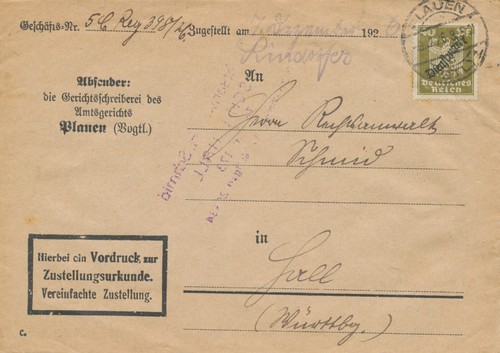 Geschäfts-Nr. 5 C Reg 398/26 Zugestellt am 7. Dezember 192
PLAUEN
Deutsches Reich
Absender:
die Gerichtsschreiberei des
Amtsgerichts
Plauen (Vogtl.)
An
Herrn Rechtsanwalt
Schmid
in
Hall
(Württbg.)
Hierbei ein Vordruck zur
Zustellungsurkunde.
Vereinfachte Zustellung.
C.